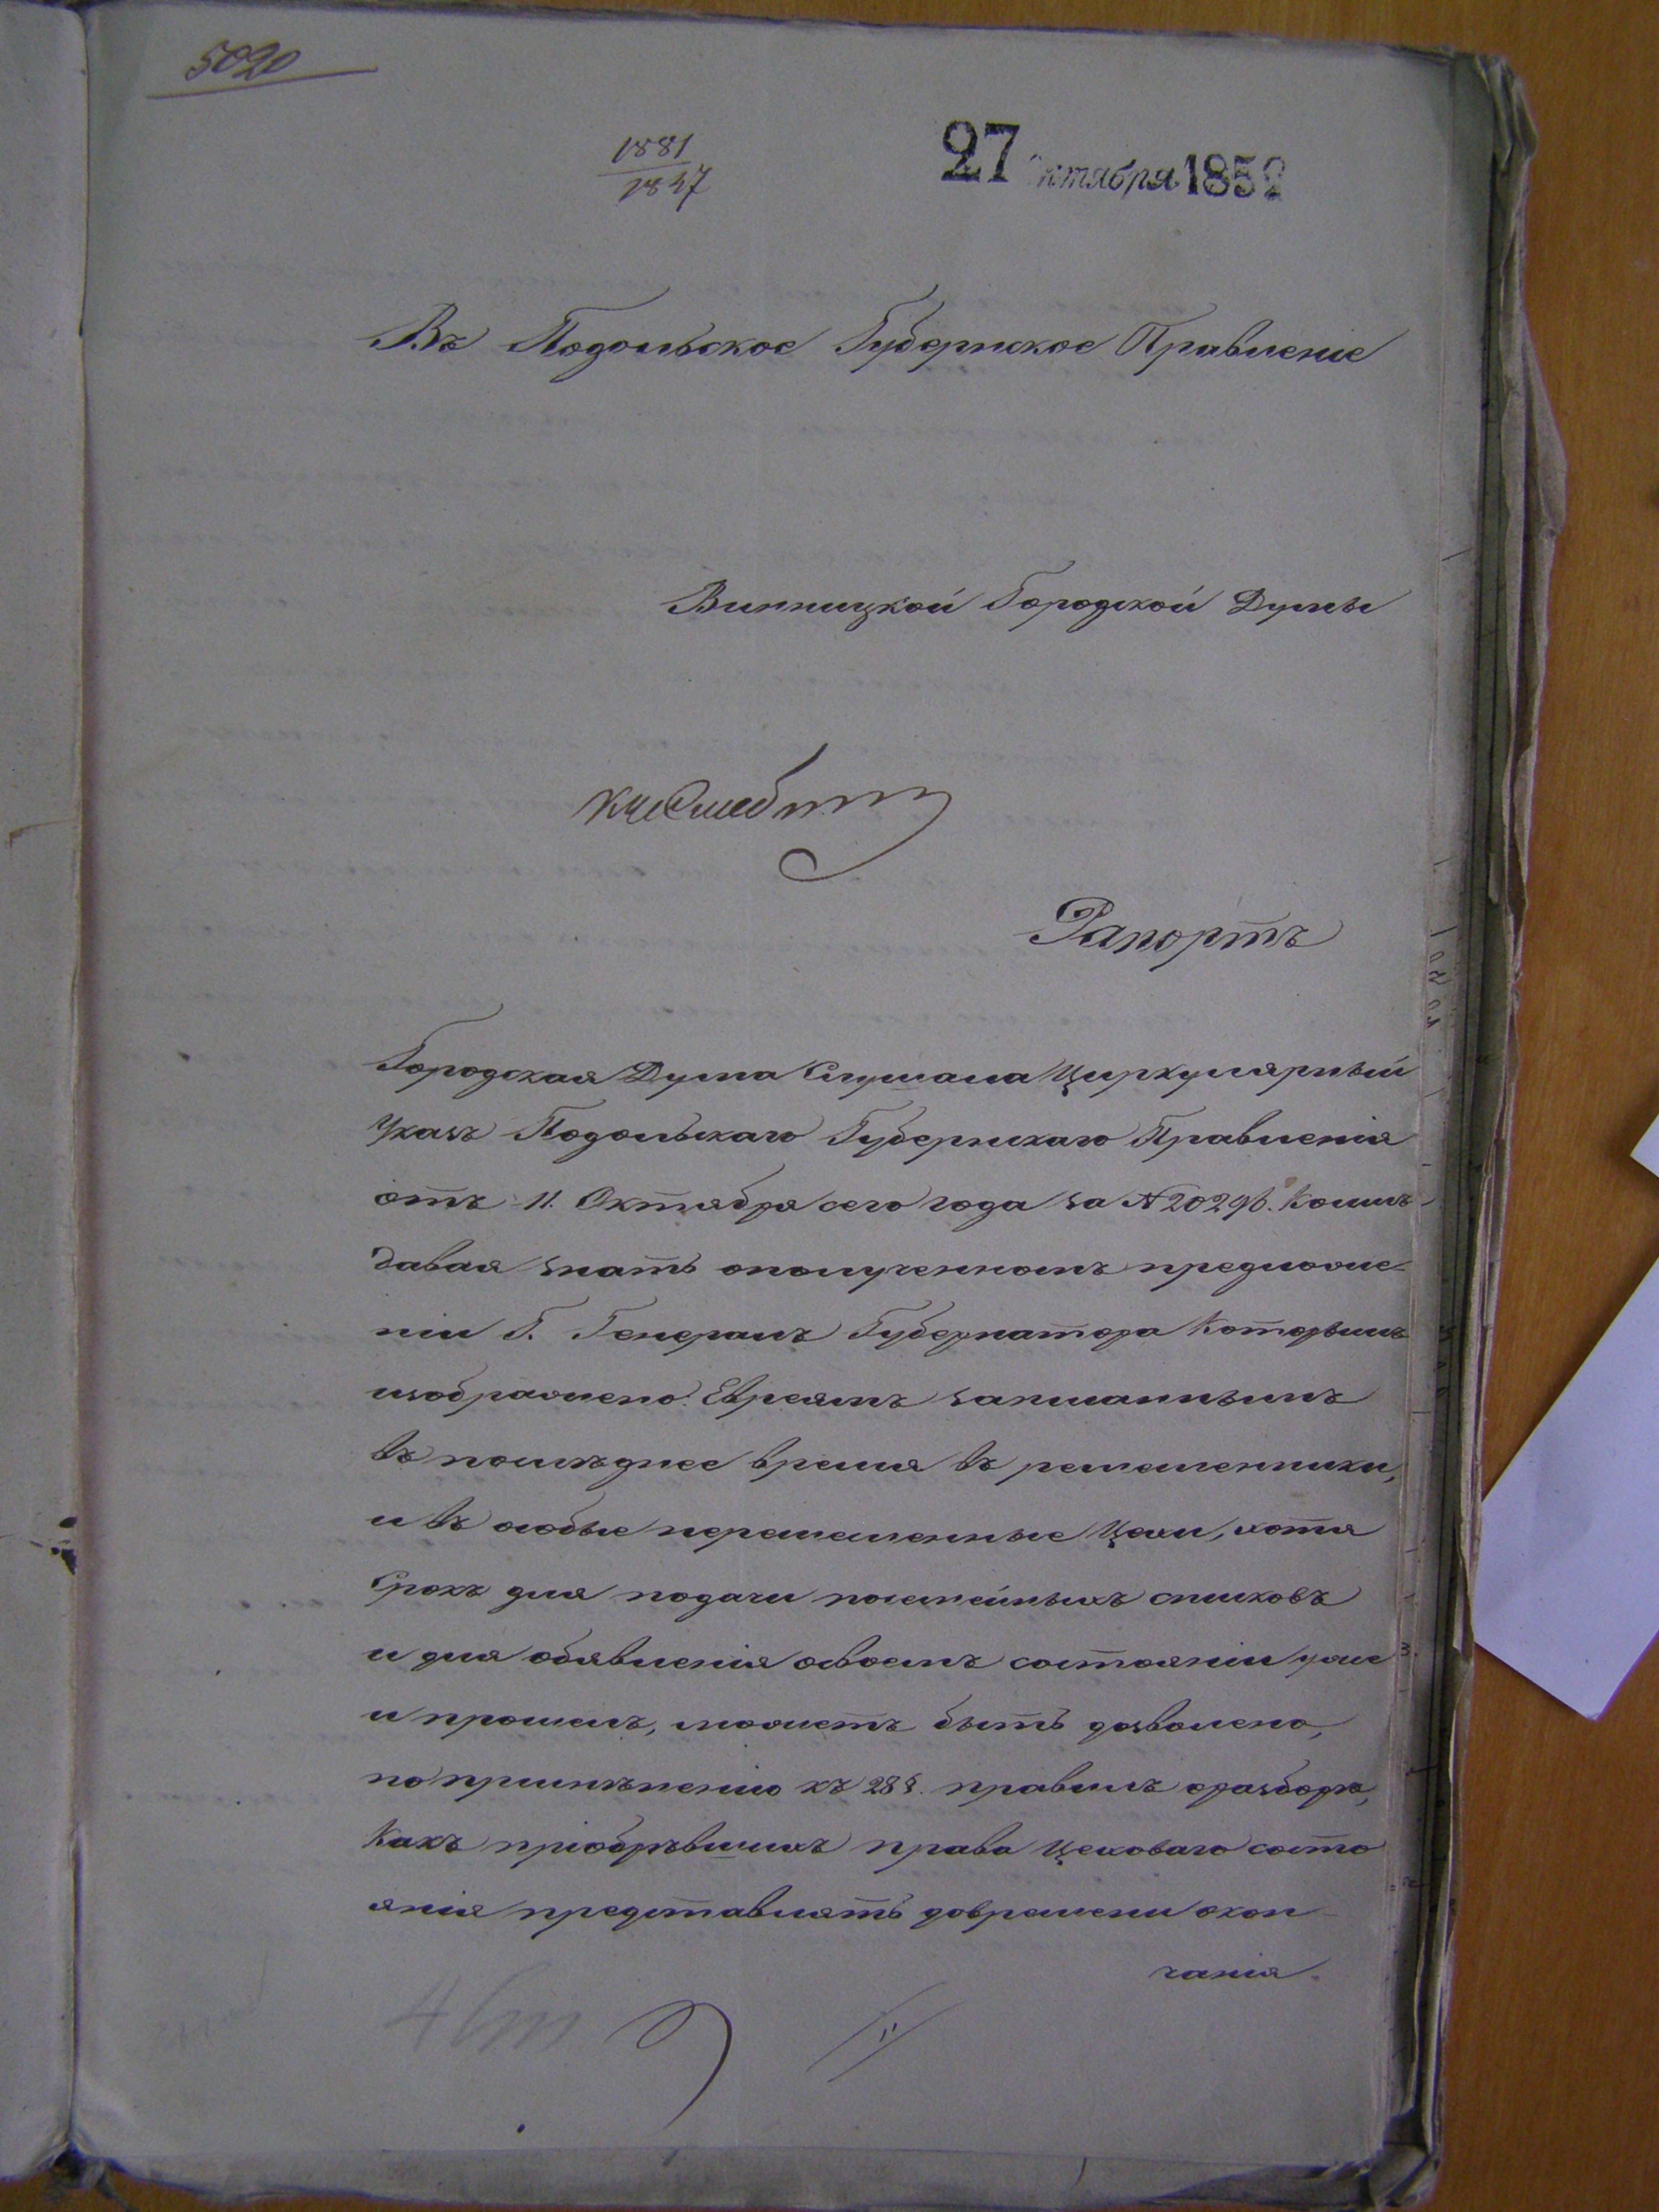 5020
1881
1847
27 октября 1852
Въ Подольское Губернское Правленіе
Винницкой Городской Думы
Рапортъ
Городская Дума Слушала Циркулярный
Указъ Подольскаго Губернскаго Правленія
отъ 11. Октября сего года за №20296. Коимъ
давая знать ополученномъ предложе-
ніи Г. Генералъ Губернатора Которымъ
изображено: Евреямъ записаннымъ
въ послѣднее время въ ремесленники,
и въ особые неремесленные Цехи, хотя
Срокъ для подачи посемейныхъ списковъ
и для объявленія освоемъ состояніи уже
и прошелъ, можетъ быть дозволено,
по примѣненію къ 28 §. правилъ оразборѣ,
Какъ пріобрѣвшихъ права Цеховаго состо
янія представлять довремени окон-
чанія.